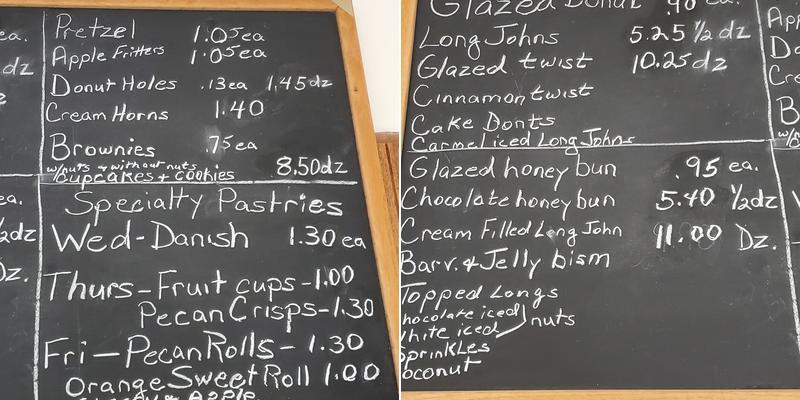 ea.
dz
Pretzel 1.05ea
Apple Fritters 1.05ea
Donut Holes .13ea 1.45dz
Cream Horns 1.40
Brownies .75ea
w/nuts + without nuts
Cupcakes + cookies 8.50dz
Specialty Pastries
Wed-Danish 1.30 ea
Thurs-Fruit cups-1.00
Pecan Crisps-1.30
Fri-Pecan Rolls-1.30
Orange Sweet Roll 1.00
ea.
½dz
DZ.
Glazed Donut .90 ea.
Long Johns 5.25 ½ dz
Glazed twist 10.25dz
Cinnamon twist
Cake Donts
Carmel iced Long Johns
Glazed honey bun .95 ea.
Chocolate honey bun 5.40 ½dz
Cream Filled Long John 11.00 Dz.
Barv. & Jelly bism
Topped Longs
hocolate iced
hite iced nuts
sprinkles
oconut